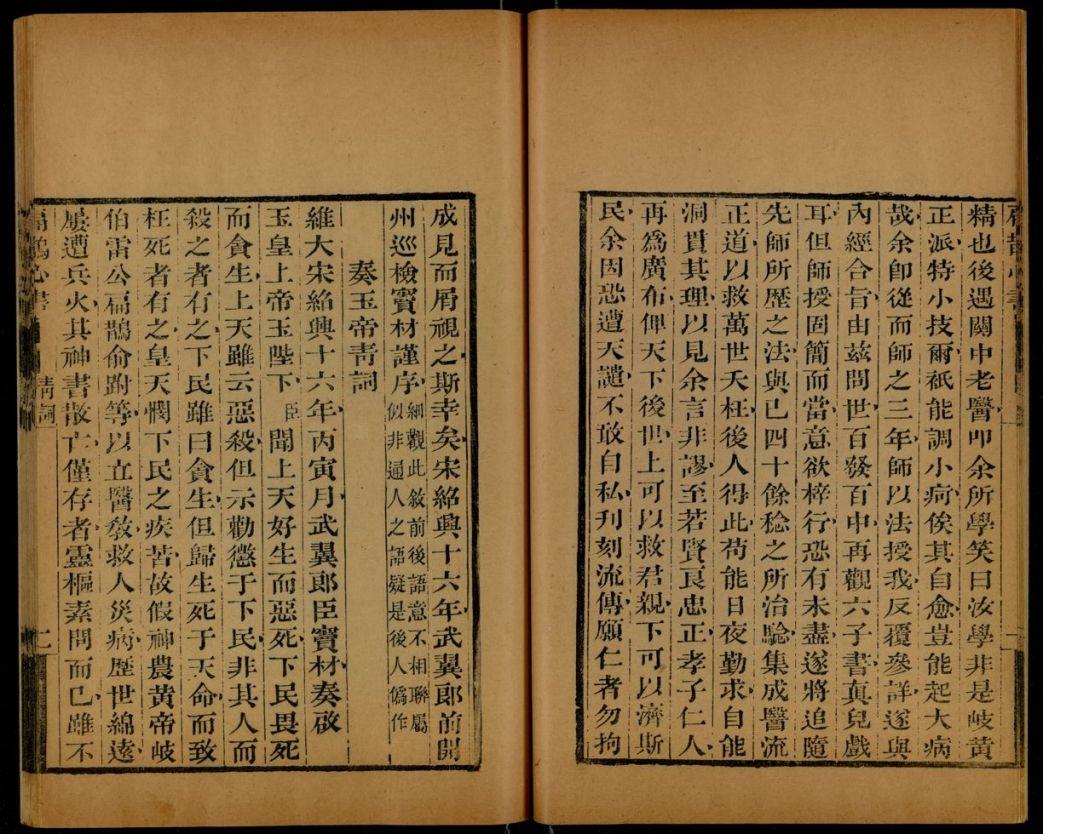 精也後遇關中老醫叩余所學笑曰汝學非是岐黃
正派特小技爾祇能調小疴俟其自愈豈能起大病
哉余卽從而師之三年師以法授我反覆參詳遂與
內經合旨由茲問世百發百中再觀六子書眞兒戲
耳但師授固簡而當意欲梓行恐有未盡遂將追隨
先師所歷之法與已四十餘稔之所治驗集成醫流
正道以救萬世夭枉後人得此苟能日夜勤求自能
洞貫其理以見余言非謬至若賢良忠正孝子仁人
再爲廣布俾天下後世上可以救君親下可以濟斯
民余因恐遭天譴不敢自私刊刻流傳願仁者勿拘
成見而屑視之斯幸矣宋紹興十六年武翼郎前開
州巡檢竇材謹序細觀此敘前後語意不相聯屬
似非通人之語疑是後人僞作
奏玉帝靑詞
維大宋紹興十六年丙寅月武翼郎臣竇材奏啟
玉皇上帝玉陛下臣聞上天好生而惡死下民畏死
而貪生上天雖云惡殺但示勸懲于下民非其人而
殺之者有之下民雖曰貪生但歸生死于天命而致
枉死者有之皇天憫下民之疾苦故假神農黃帝岐
伯雷公扁鵲俞跗等以立醫敎救人災病歷世綿遠
屢遭兵火其神書散亡僅存者靈樞素問而已雖不
扁鵲心書 靑詞 二